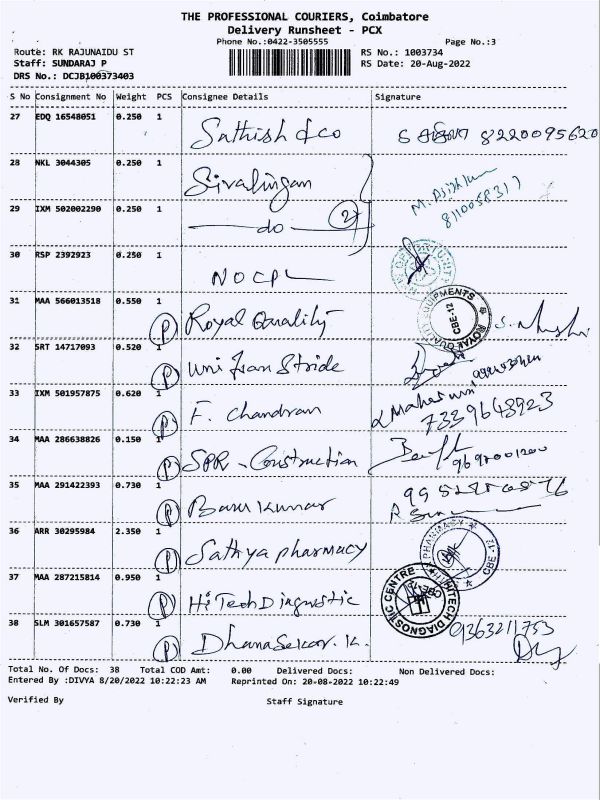 THE PROFESSIONAL COURIERS, Coimbatore
Delivery Runsheet - PCX
Phone No.:0422-3505555 Page No.:3
Route: RK RAJUNAIDU ST RS No.: 1003734
Staff: SUNDARAJ P RS Date: 20-Aug-2022
DRS No.: DCJB100373403
S No Consignment No Weight PCS Consignee Details Signature
27 EDQ 16548051 0.250 1 Sathish & co 8220095620
28 NKL 3044305 0.250 1 Sivalingam
M. 8110058317
29 IXM 502002290 0.250 1 do 2
30 RSP 2392923 0.250 1 NOCPL
31 MAA 566013518 0.550 1 P Royal Quality ROYAL QUALITY EQUIPMENTS CBE-12
32 SRT 14717093 0.520 1 P Uni Fran Stride
33 IXM 501957875 0.620 1 P F. Chandran 7339648923
34 MAA 286638826 0.150 1 P SPR - Construction
35 MAA 291422393 0.730 1 P Banu Kumar
36 ARR 30295984 2.350 1 P Sathya pharmacy PHARMACY CBE-12
37 MAA 287215814 0.950 1 P Hi Tech Diagnostic HITECH DIAGNOSTIC CENTRE
38 SLM 301657587 0.730 1 P Dhanasekar. K. 9363211753
Total No. Of Docs: 38 Total COD Amt: 0.00 Delivered Docs: Non Delivered Docs:
Entered By :DIVYA 8/20/2022 10:22:23 AM Reprinted On: 20-08-2022 10:22:49
Verified By Staff Signature